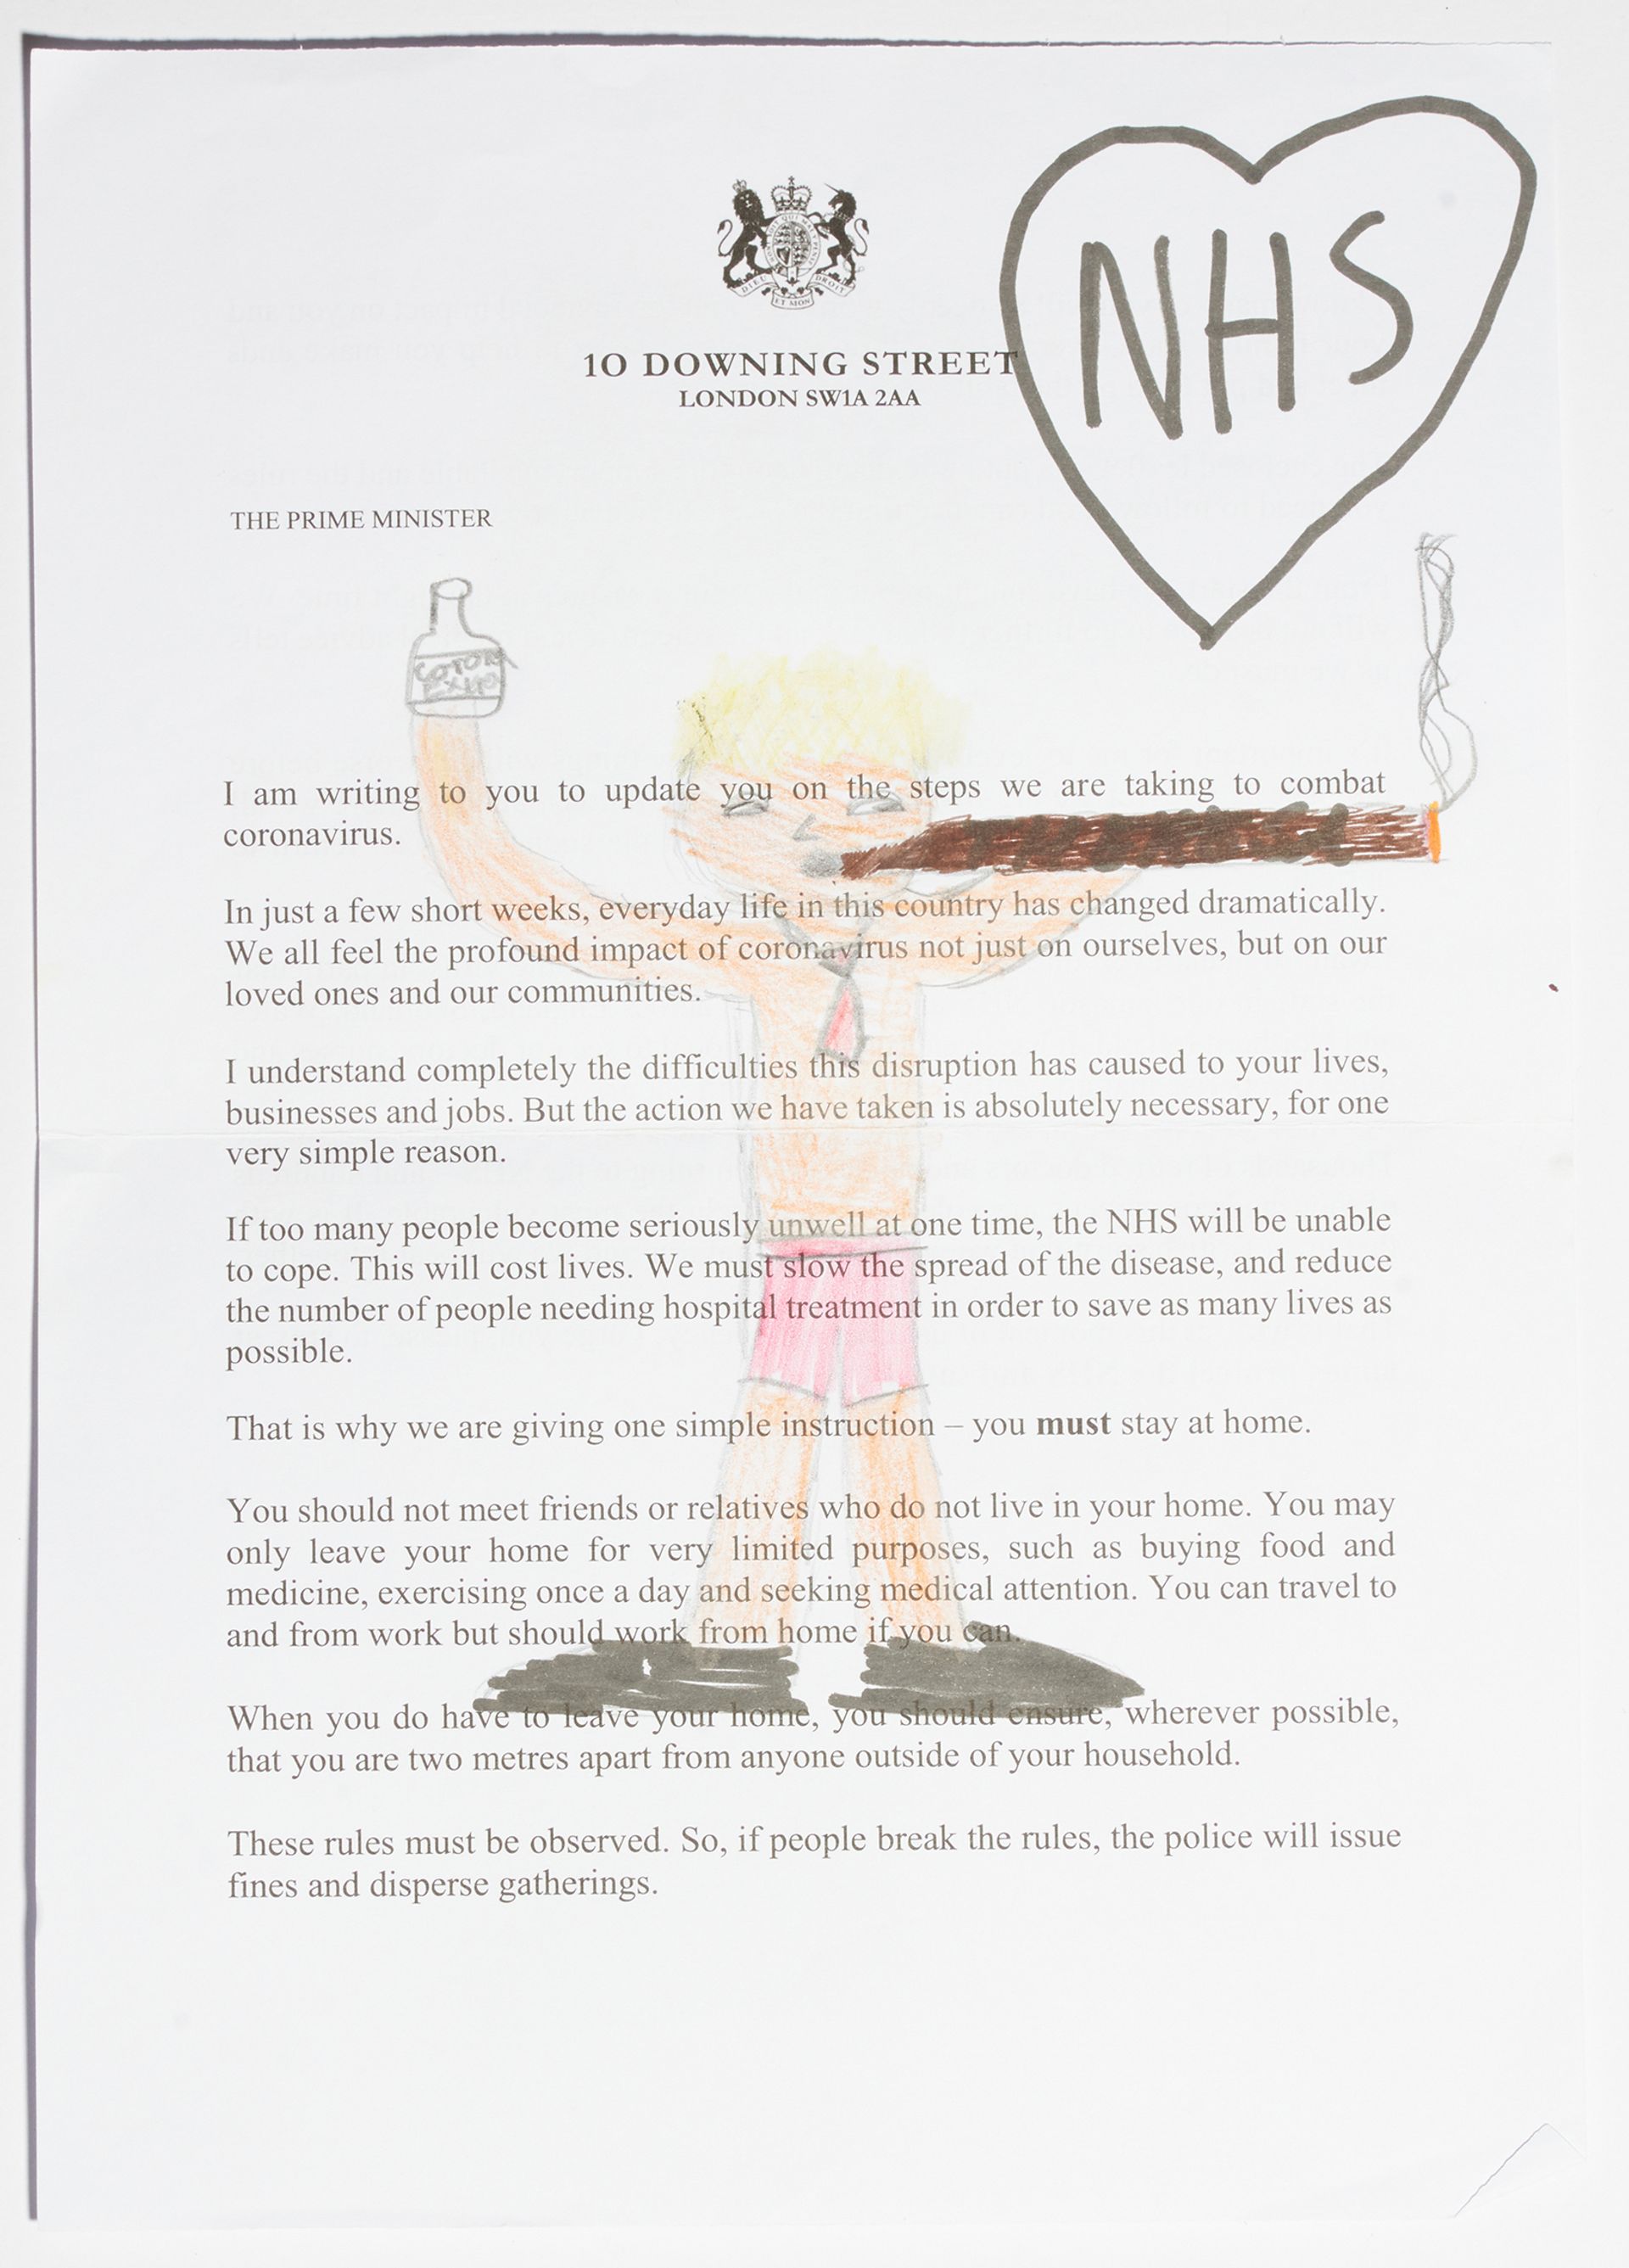 NHS
DIEU ET MON DROIT
10 DOWNING STREET
LONDON SW1A 2AA
THE PRIME MINISTER
corona
Extra
I am writing to you to update you on the steps we are taking to combat
coronavirus.
In just a few short weeks, everyday life in this country has changed dramatically.
We all feel the profound impact of coronavirus not just on ourselves, but on our
loved ones and our communities.
I understand completely the difficulties this disruption has caused to your lives,
businesses and jobs. But the action we have taken is absolutely necessary, for one
very simple reason.
If too many people become seriously unwell at one time, the NHS will be unable
to cope. This will cost lives. We must slow the spread of the disease, and reduce
the number of people needing hospital treatment in order to save as many lives as
possible.
That is why we are giving one simple instruction – you must stay at home.
You should not meet friends or relatives who do not live in your home. You may
only leave your home for very limited purposes, such as buying food and
medicine, exercising once a day and seeking medical attention. You can travel to
and from work but should work from home if you can.
When you do have to leave your home, you should ensure, wherever possible,
that you are two metres apart from anyone outside of your household.
These rules must be observed. So, if people break the rules, the police will issue
fines and disperse gatherings.